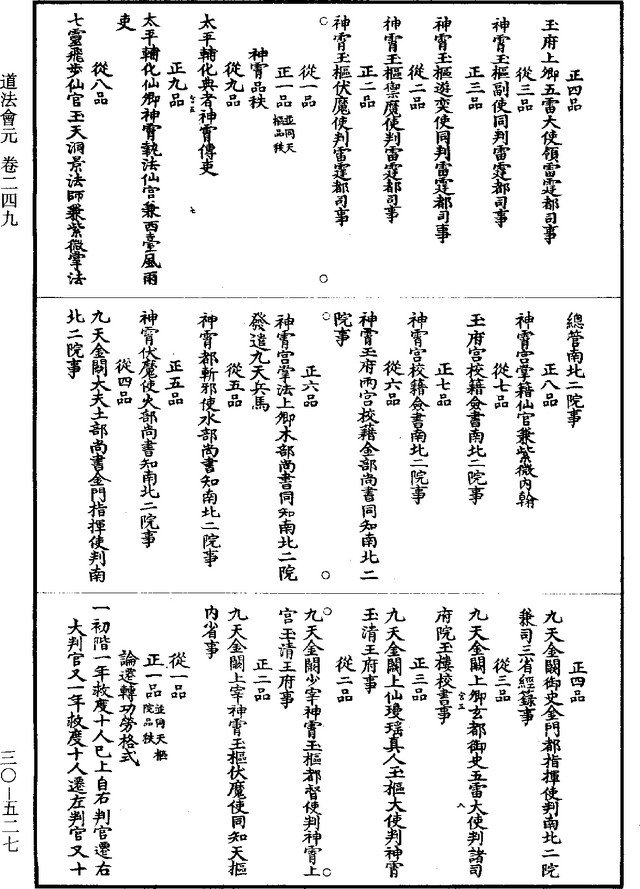 正四品
玉府上卿五雷大使領雷霆都司事
從三品
神霄玉樞副使同判雷霆都司事
正三品
神霄玉樞遊奕使同判雷霆都司事
從二品
神霄玉樞禦魔使判雷霆都司事
正二品
神霄玉樞伏魔使判雷霆都司事
從一品
正一品並同天樞品秩
神霄品秩
從九品
太平輔化典者神霄傳吏
正九品
太平輔化仙卿神霄執法仙官兼西臺風雨
吏
從八品
七靈飛步仙官玉天洞景法師兼紫微掌法
總管南北二院事
正八品
神霄宮掌籍仙官兼紫微內翰
從七品
玉府宮校籍僉書南北二院事
正七品
神霄宮校籍僉書南北二院事
從六品
神霄玉府兩宮校籍金部尚書同知南北二
院事
正六品
神霄宮掌法上卿木部尚書同知南北二院
發遣九天兵馬
從五品
神霄都斬邪使水部尚書知南北二院事
正五品
神霄伏魔使火部尚書知南北二院事
從四品
九天金闕大夫土部尚書金門指揮使判南
北二院事
正四品
九天金闕御史金門都指揮使判南北二院
兼司三省經籙事
從三品
九天金闕上卿玄都御史五雷大使判諸司
府院玉樓校書事
正三品
九天金闕上仙瓊瑤真人玉樞大使判神霄
玉清王府事
從二品
九天金闕少宰神霄玉樞都督使判神霄上
宮玉清王府事
正二品
九天金闕上宰神霄玉樞伏魔使同知天樞
內省事
從一品
正一品並同天樞院品秩
論遷轉功勞格式
一初階一年救度十人已上自右判官遷右
大判官又一年救度十人遷左判官又十
道法會元 卷二四九
三〇—五二七